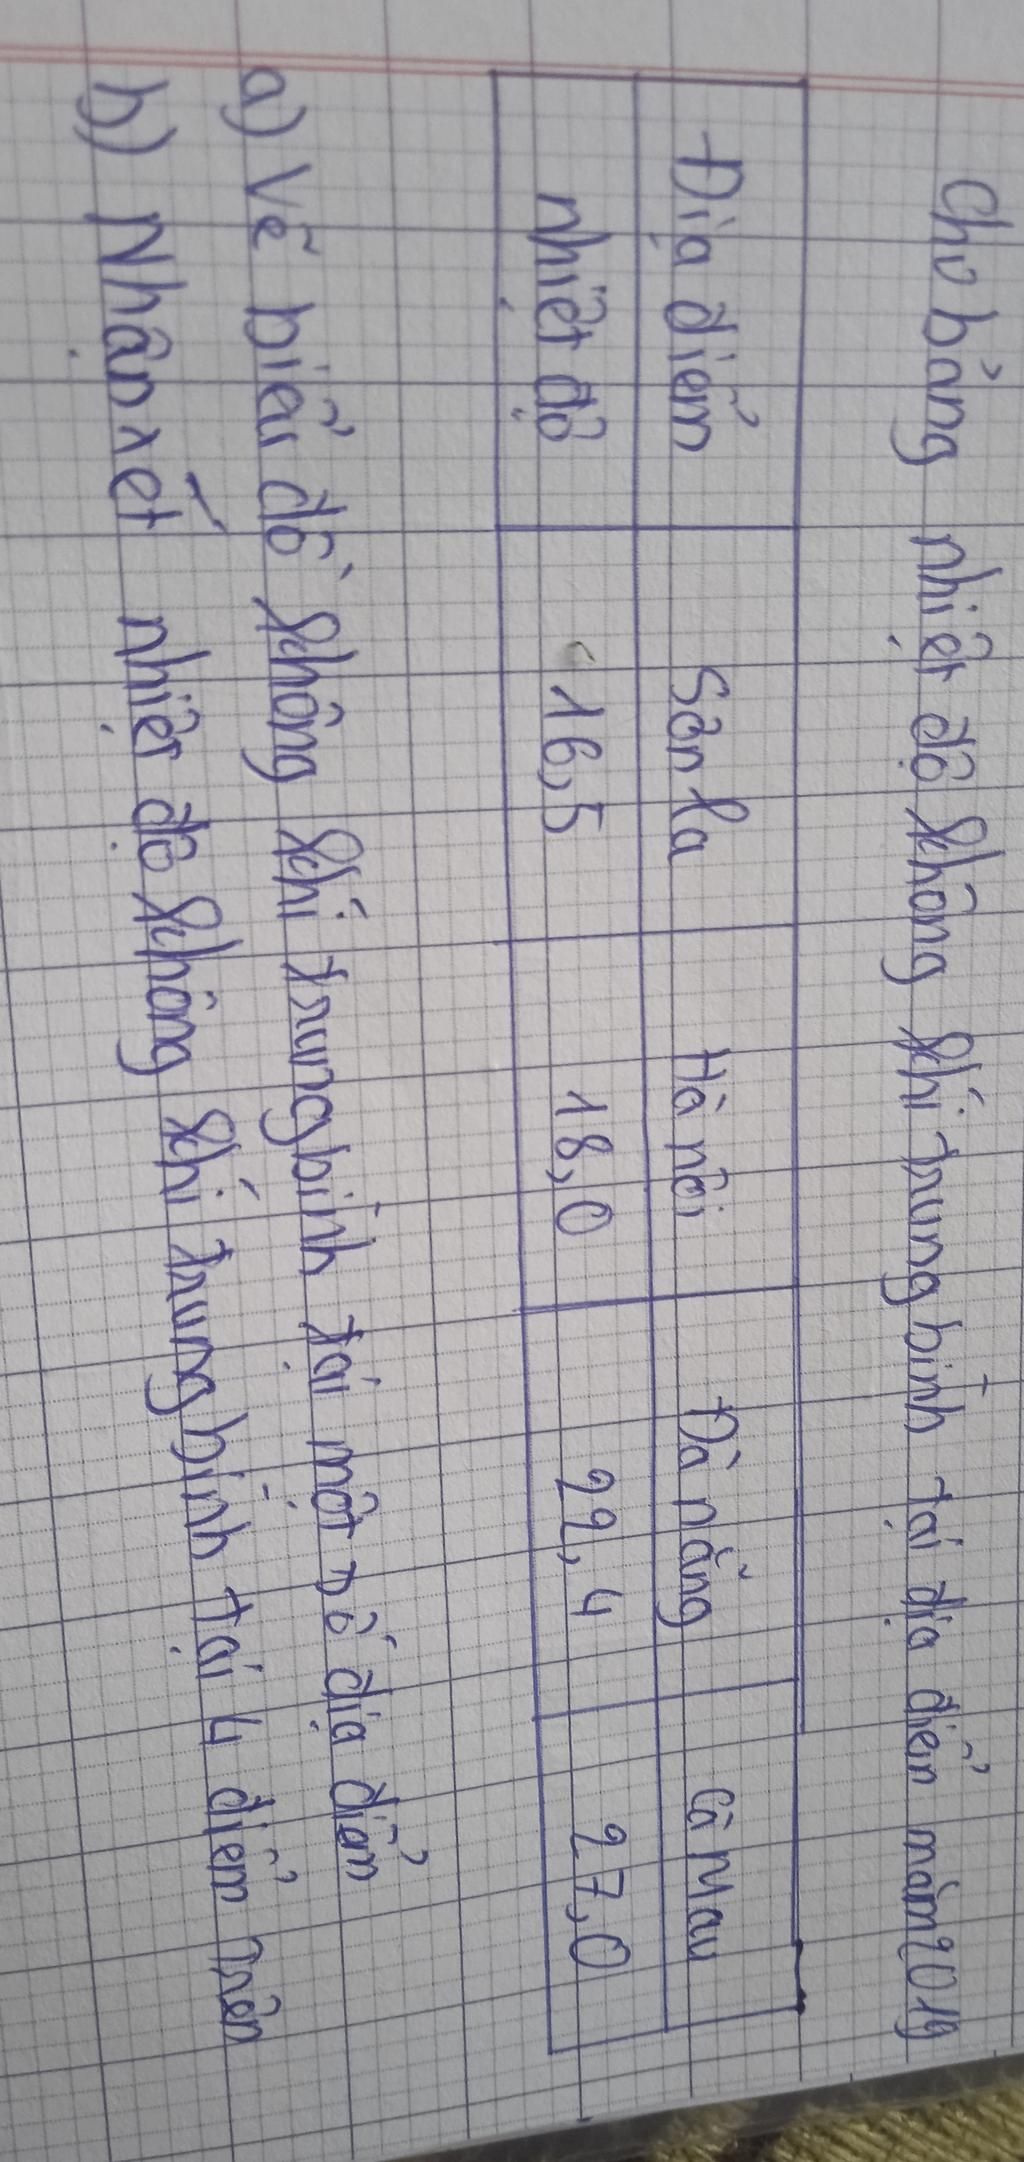 Cho bảng nhiệt độ không khí trung bình tại địa điểm năm 2019
Địa điểm Sơn la Hà nội Đà nẵng Cà Mau
nhiệt độ 16,5 18,0 22,4 27,0
a) Vẽ biểu đồ không khí trung bình tại một số địa điểm
b) Nhận xét nhiệt độ không khí trung bình tại 4 điểm trên